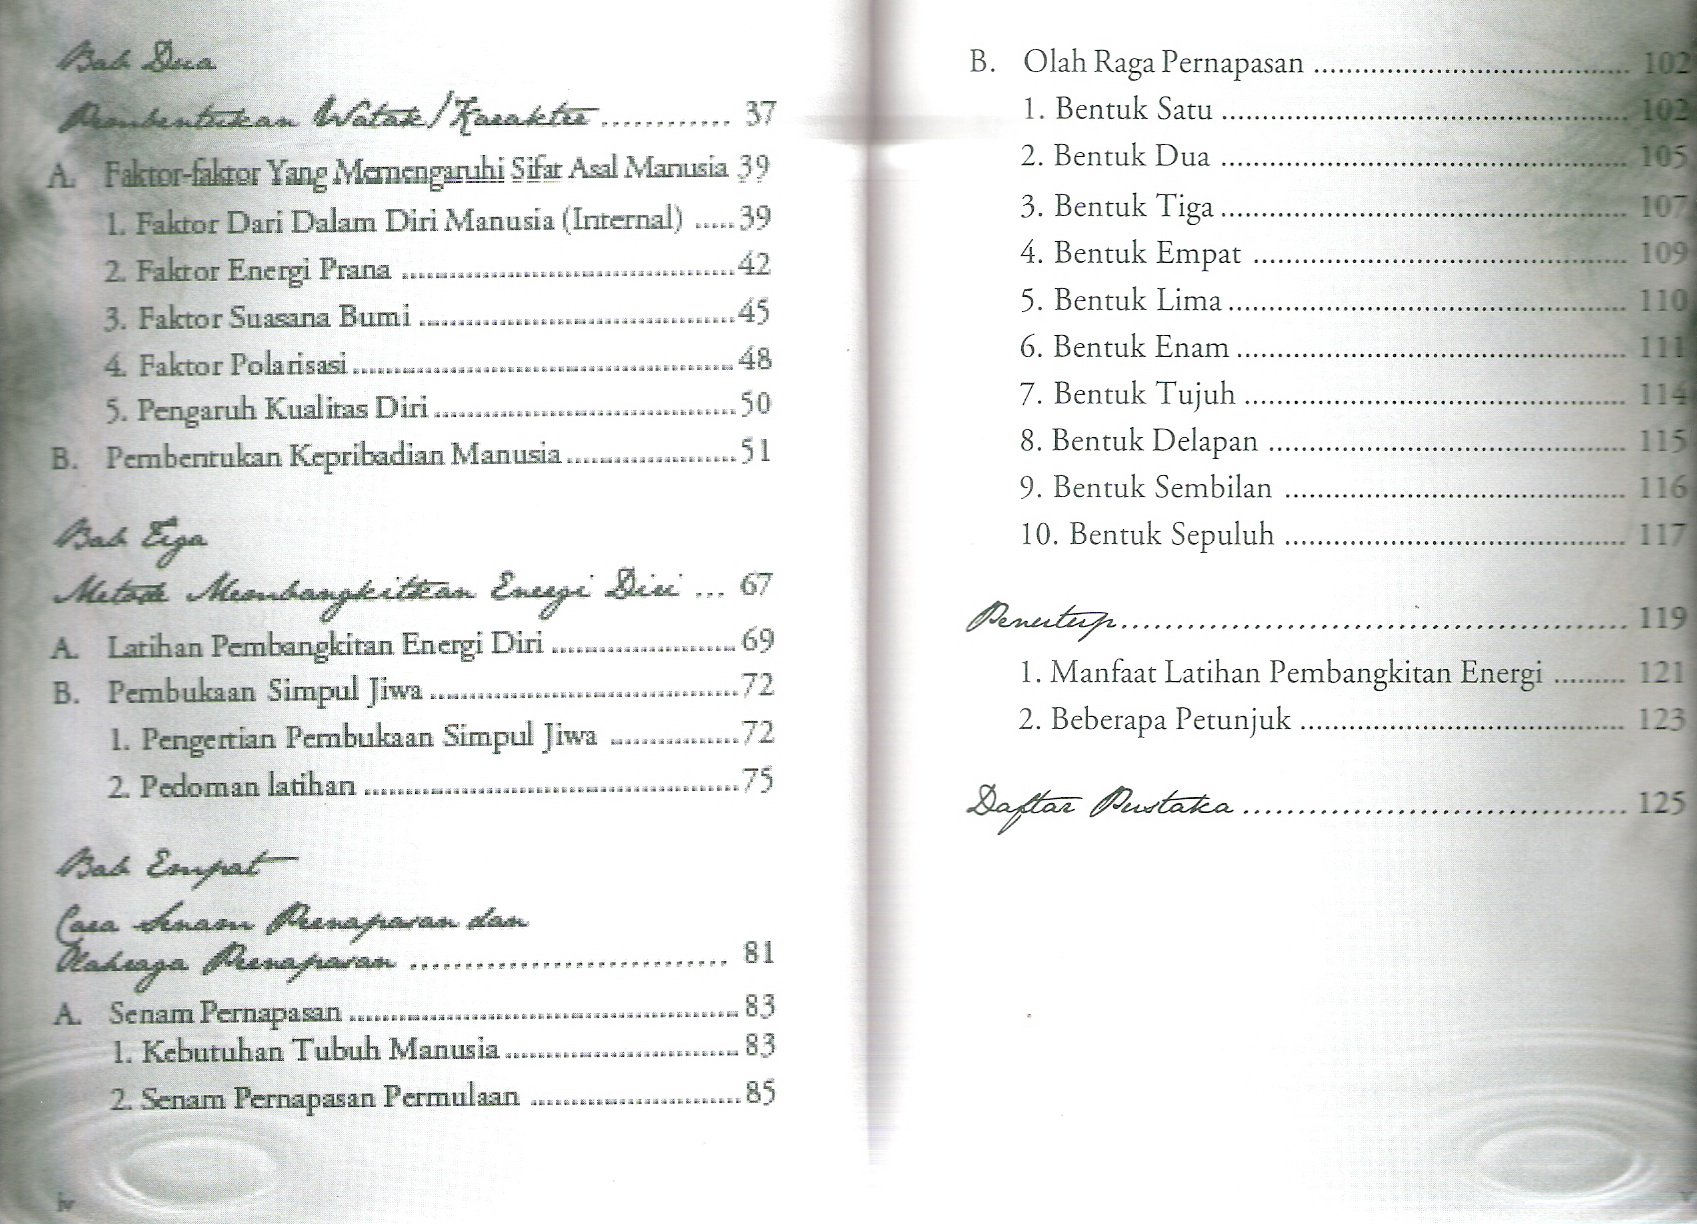 Bab Dua
Pembentukan Watak/Karakter ............ 37
A. Faktor-faktor Yang Memengaruhi Sifat Asal Manusia 39
1. Faktor Dari Dalam Diri Manusia (Internal) ..... 39
2. Faktor Energi Prana ........................................ 42
3. Faktor Suasana Bumi ...................................... 45
4. Faktor Polarisasi .............................................. 48
5. Pengaruh Kualitas Diri ..................................... 50
B. Pembentukan Kepribadian Manusia ..................... 51
Bab Tiga
Metode Membangkitkan Energi Diri ... 67
A. Latihan Pembangkitan Energi Diri ....................... 69
B. Pembukaan Simpul Jiwa ...................................... 72
1. Pengertian Pembukaan Simpul Jiwa ................ 72
2. Pedoman latihan .............................................. 75
Bab Empat
Cara Senam Pernapasan dan
Olahraga Pernapasan ............................. 81
A. Senam Pernapasan ................................................ 83
1. Kebutuhan Tubuh Manusia ............................. 83
2. Senam Pernapasan Permulaan .......................... 85
iv
B. Olah Raga Pernapasan ....................................... 102
1. Bentuk Satu .................................................. 102
2. Bentuk Dua .................................................. 105
3. Bentuk Tiga .................................................. 107
4. Bentuk Empat .............................................. 109
5. Bentuk Lima ................................................. 110
6. Bentuk Enam ................................................ 111
7. Bentuk Tujuh ............................................... 114
8. Bentuk Delapan ............................................ 115
9. Bentuk Sembilan .......................................... 116
10. Bentuk Sepuluh .......................................... 117
Penutup .............................................. 119
1. Manfaat Latihan Pembangkitan Energi ......... 121
2. Beberapa Petunjuk ........................................ 123
Daftar Pustaka ................................... 125
v